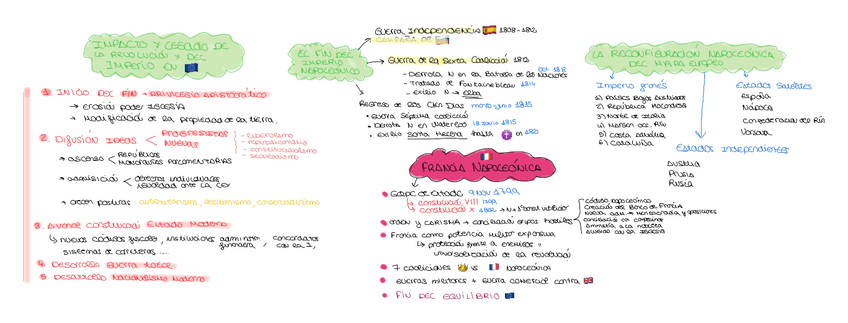 IMPACTO Y LEGADO DE
LA REVOLUCIÓN Y DEL
IMPERIO EN
1. INICIO DEL FIN PRIVILEGIO ARISTOCRÁTICO
→ EROSIÓN PODER IGLESIA
→ MODIFICACIÓN DE LA PROPIEDAD DE LA TIERRA.
2. DIFUSIÓN IDEAS
PROGRESISTAS
NUEVAS
- LIBERALISMO
- REPUBLICANISMO
- CONSTITUCIONALISMO
- SECULARISMO
→ ASCENSO
REPÚBLICAS
MONARQUÍAS PARLAMENTARIAS
→ ADQUISICIÓN
DERECHOS INDIVIDUALES
IGUALDAD ANTE LA LEY
→ OTRAS POSTURAS:
3. AVANCE CONSTRUCCIÓN ESTADO MODERNO
NUEVOS CÓDIGOS
SISTEMAS DE CARRETERAS ...
4. DESARROLLO GUERRA TOTAL
5. DESARROLLO NACIONALISMO MODERNO
EL FIN DEL
IMPERIO
NAPOLEÓNICO
GUERRA INDEPENDENCIA
CAMPAÑA DE
GUERRA DE LA SEXTA COALICIÓN
- DERROTA N EN LA BATALLA DE LAS NACIONES
OCT 1813
- TRATADO DE FONTAINEBLEAU 1814
- EXILIO N → ELBA
REGRESO DE LOS CIEN DÍAS MARZO-JUNIO 1815
GUERRA SÉPTIMA COALICIÓN
DERROTA N EN WATERLOO 18 JUNIO 1815
EXILIO SANTA HELENA HASTA EN 1821
FRANCIA NAPOLEÓNICA
GOLPE DE ESTADO 9 NOV 1799
→ CONSTITUCIÓN VIII 1799
→ CONSTITUCIÓN X 1802 → N =
ORDEN Y CARISMA → CONCILIACIÓN GRUPOS HOSTILES
CÓDIGO NAPOLEÓNICO
CREACIÓN DEL BANCO DE FRANCIA
AMNISTÍA A LA NOBLEZA
ACUERDO CON LA IGLESIA
FRANCIA COMO POTENCIA MILITAR EXPANSIVA
PROTECCIÓN FRENTE A ENEMIGOS Y
UNIVERSALIZACIÓN DE LA REVOLUCIÓN
7 COALICIONES VS NAPOLEÓNICA
GUERRAS MILITARES + GUERRA COMERCIAL CONTRA
FIN DEL EQUILIBRIO
LA RECONFIGURACIÓN NAPOLEÓNICA
DEL MAPA EUROPEO
IMPERIO FRANCÉS
1) PAÍSES BAJOS
2) REPÚBLICA HOLANDESA
3) NORTE DE ITALIA
4) MARGEN OCC. RIN
5) COSTA DÁLMATA
6) CATALUÑA
ESTADOS SATÉLITES
ESPAÑA
NÁPOLES
CONFEDERACIÓN DEL RÍN
VARSOVIA
ESTADOS INDEPENDIENTES
AUSTRIA
PRUSIA
RUSIA